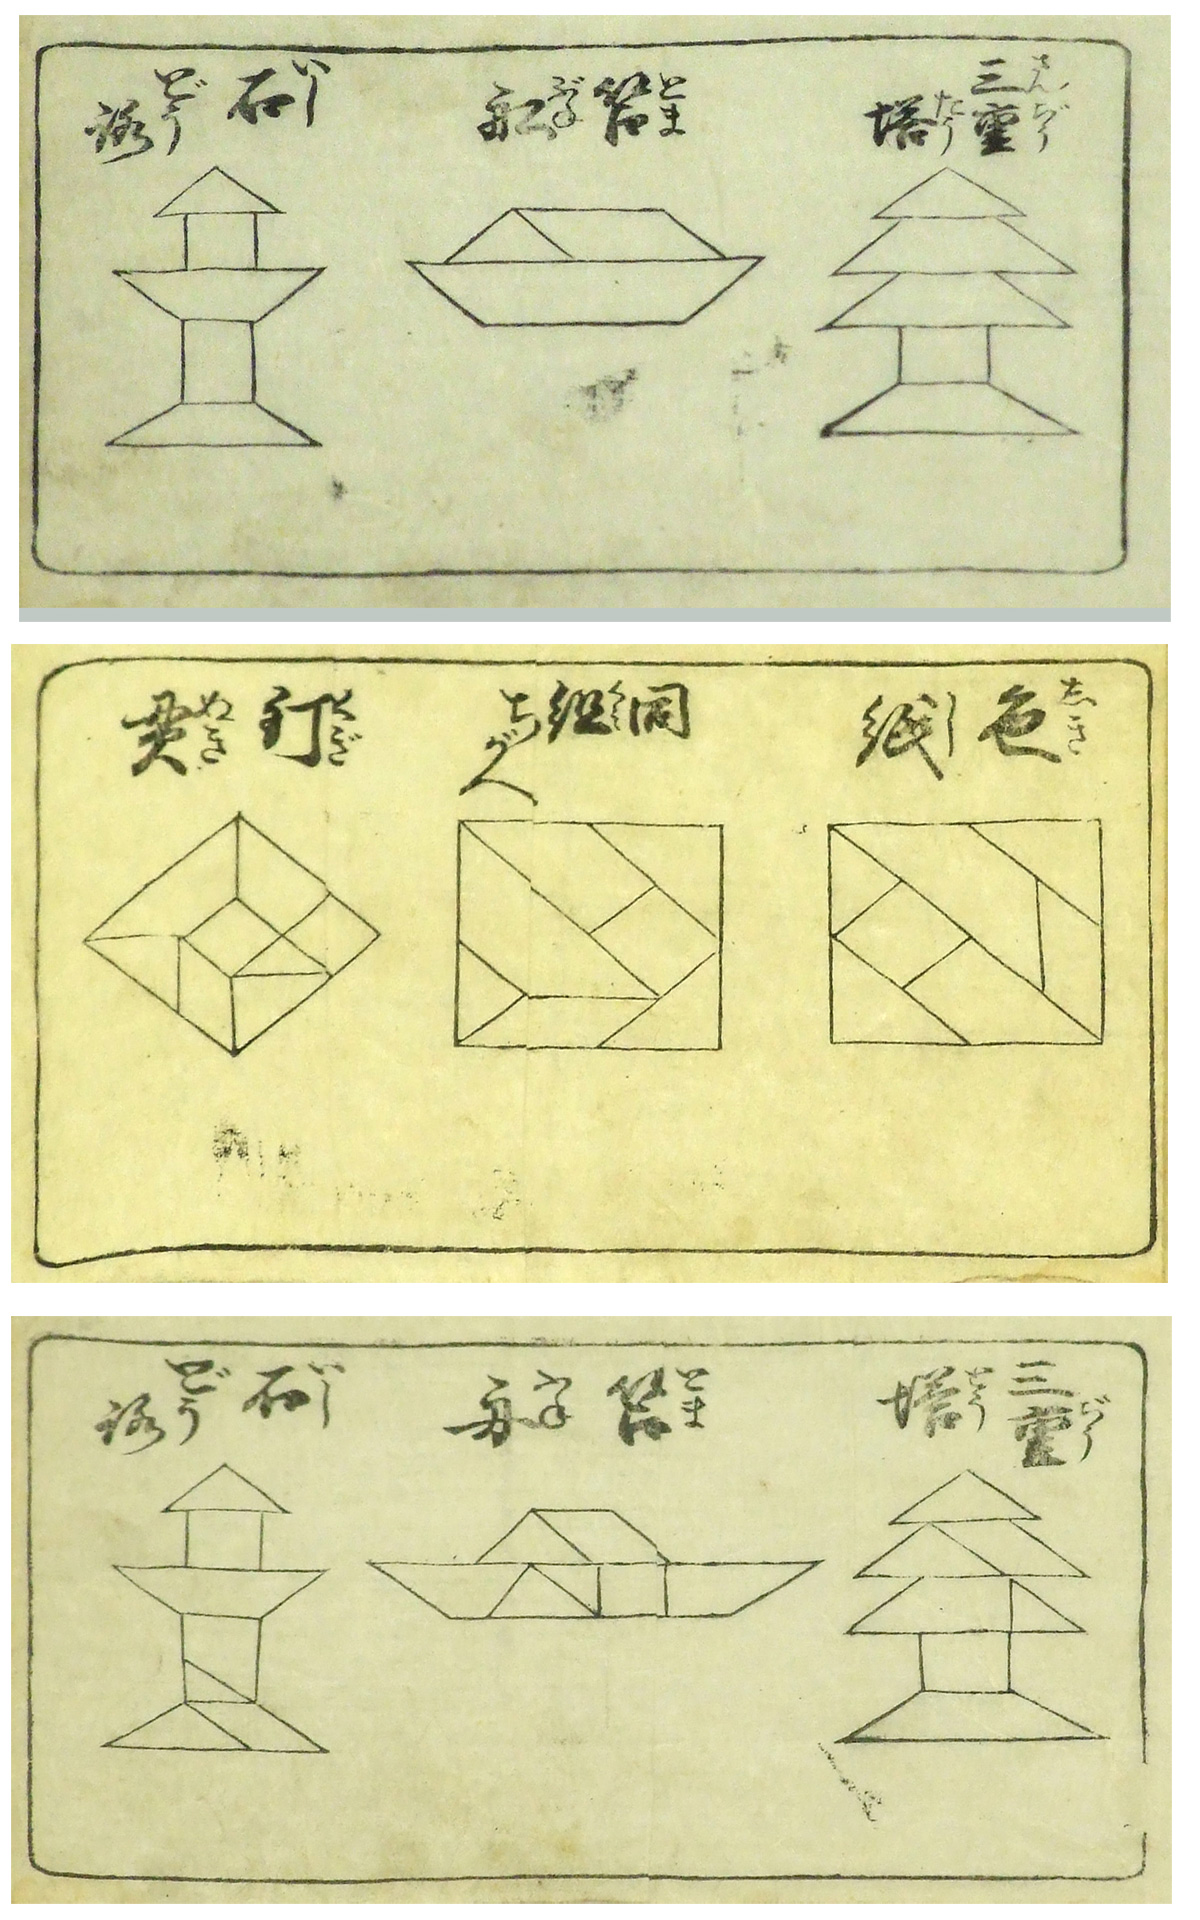 三重塔 さんぢうたう
苫舩 とまぶね
石 いしどう
色紙 しきし
同組ちがへ くみ
釘貫 くぎぬき
三重塔 ぢうたう
苫舟 とまふね
石 いしどう